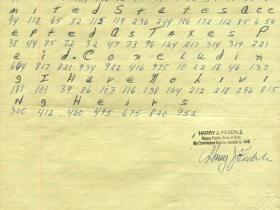 m i t e d S t a t e s A c c e
94 112 65 82 115 119 236 244 116 172 112 85 6 56
e p t e d A s T a x e s P
38 44 85 72 32 47 73 96 124 217 314 319 221
a i d . C o n c l u d i n
644 817 821 934 922 416 975 10 22 18 46 137
g I H a v e N o L i v i
181 101 39 86 103 116 138 164 212 218 296 815
N g H e i r s
300 412 460 495 675 820 952
HARRY J. FEDERLE
Notary Public, State of Ohio